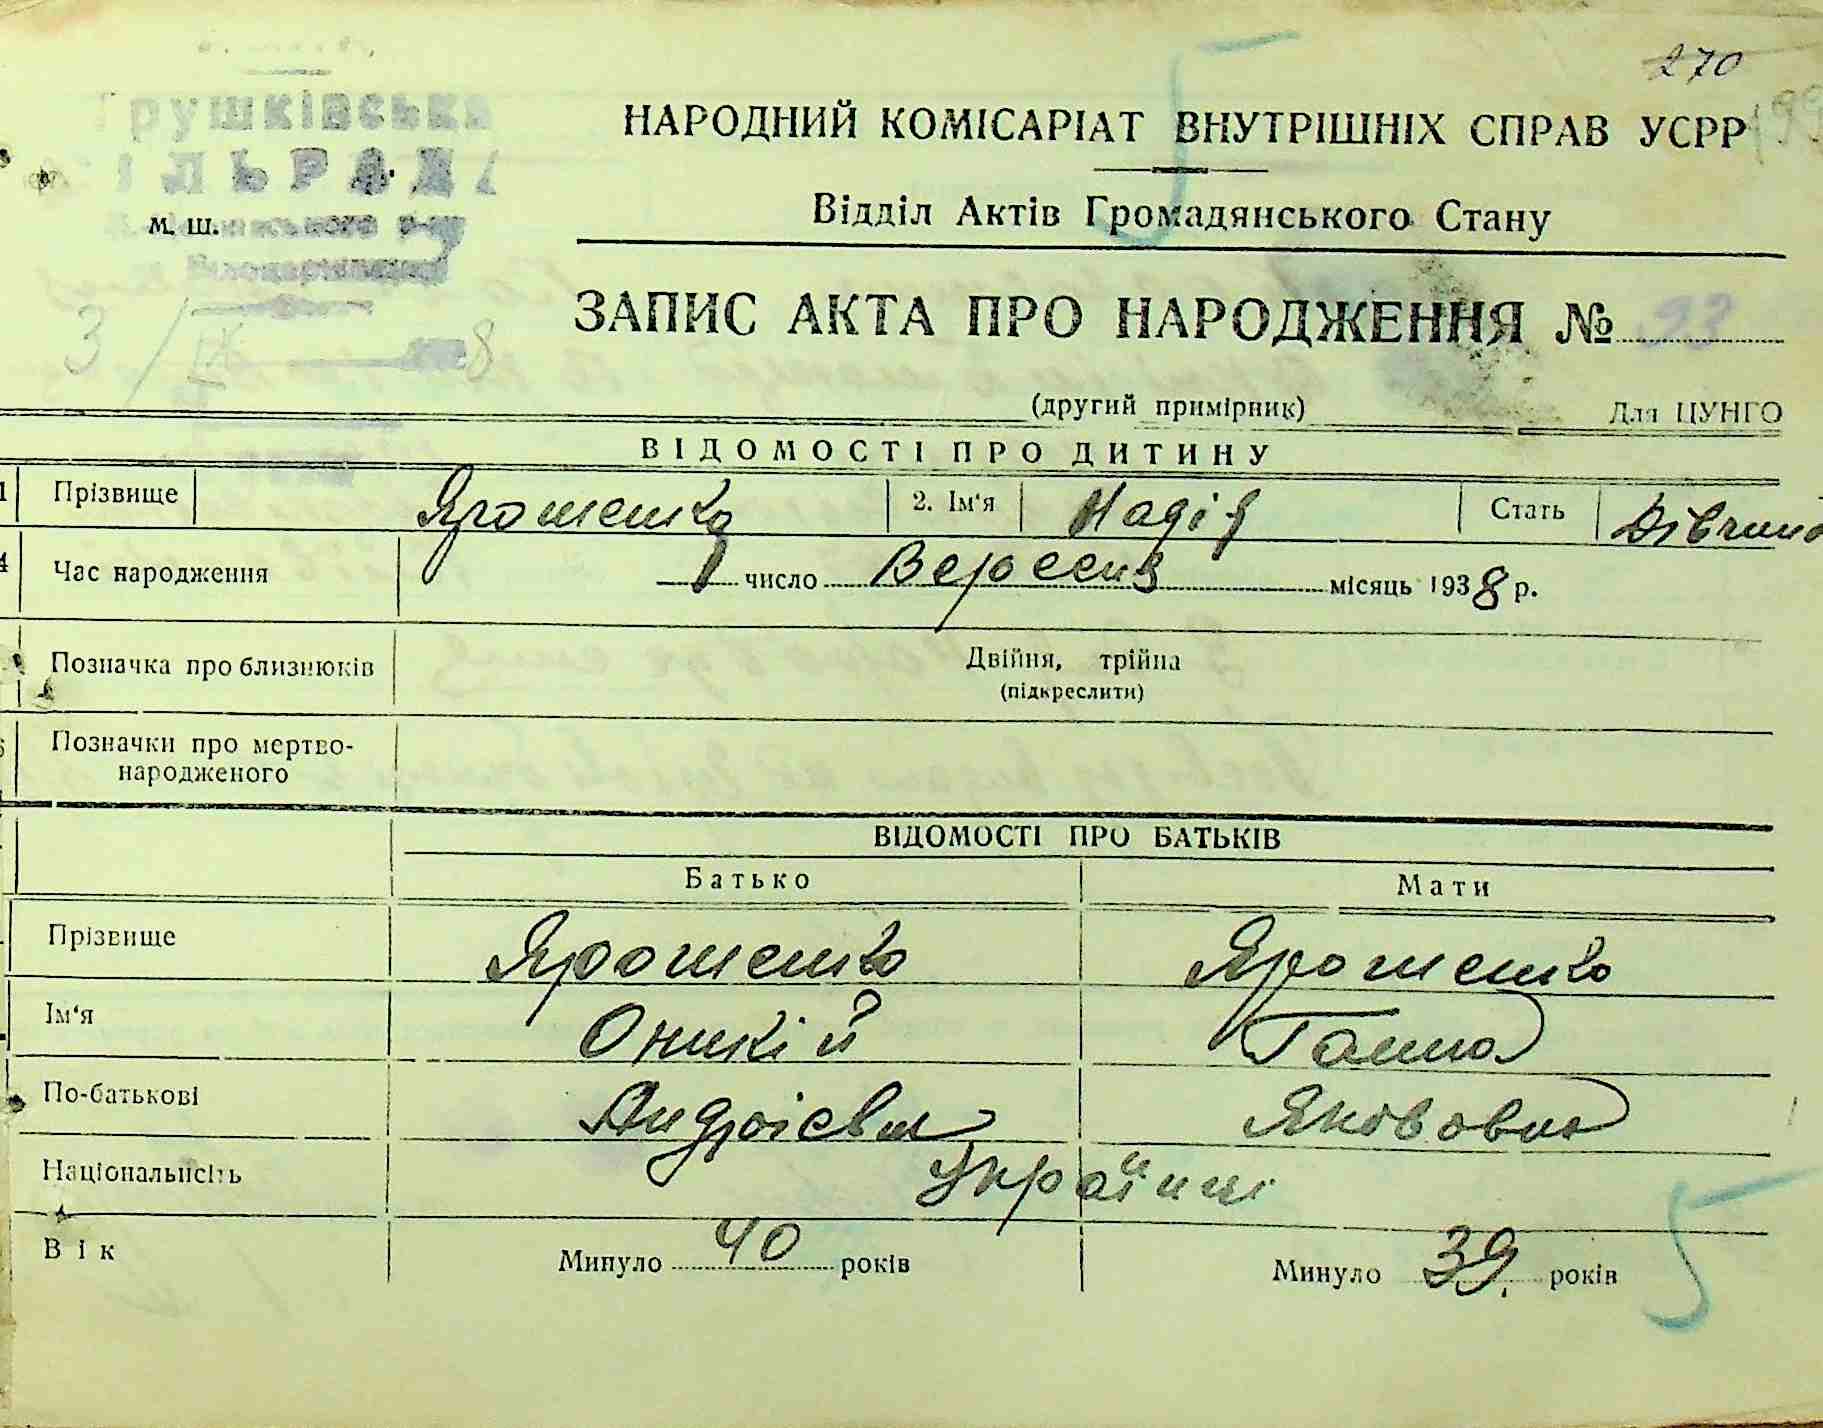 270
Грушківська
СІЛЬРАДА
м. ш.
3/IX 8
НАРОДНИЙ КОМІСАРІАТ ВНУТРІШНІХ СПРАВ УСРР
Відділ Актів Громадянського Стану
ЗАПИС АКТА ПРО НАРОДЖЕННЯ № 93
(другий примірник) Для ЦУНГО
ВІДОМОСТІ ПРО ДИТИНУ
1 Прізвище Ярошенко 2. Ім'я Надія Стать Дівчина
4 Час народження 1 число Вересня місяць 1938 р.
Позначка про близнюків Двійня, трійна
(підкреслити)
Позначки про мертво-
народженого
ВІДОМОСТІ ПРО БАТЬКІВ
Батько Мати
Прізвище Ярошенко Ярошенко
Ім'я Оникій Ганна
По-батькові Андрієвич Якововна
Національність Українці
Вік Минуло 40 років Минуло 39. років
5
5